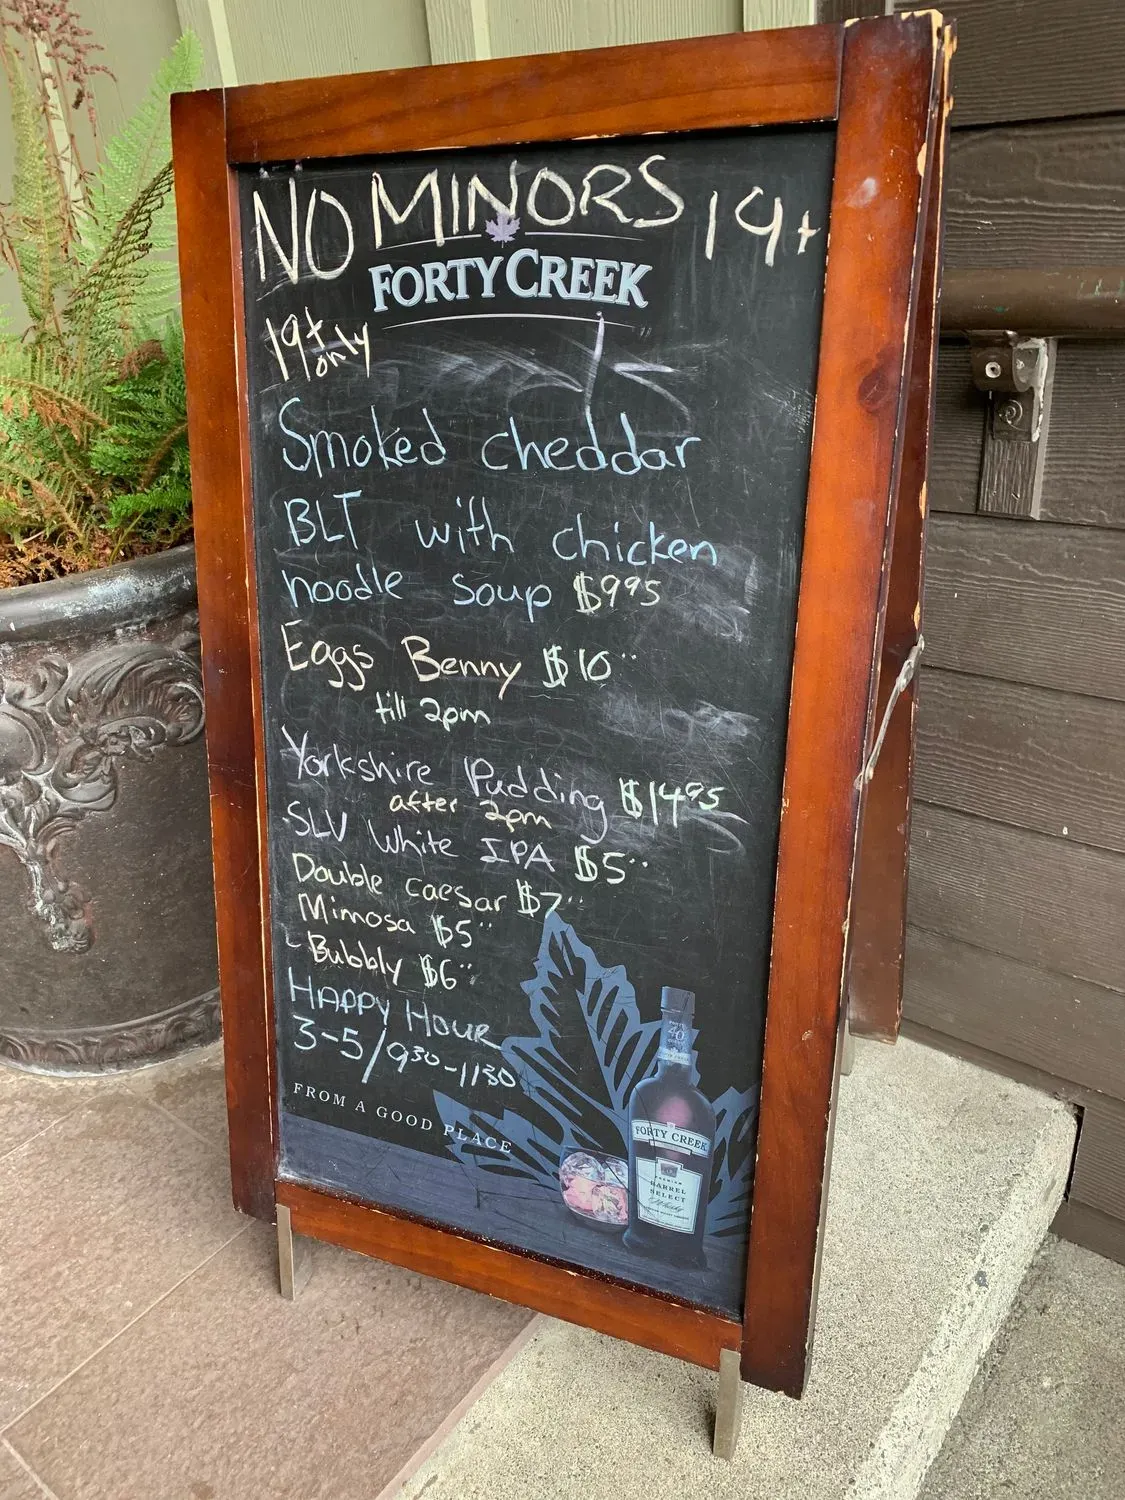 NO MINORS 19+
FORTY CREEK
19+ only
Smoked cheddar
BLT with chicken
noodle soup $9.95
Eggs Benny $10
till 2pm
Yorkshire Pudding $14.95
after 2pm
SLV White IPA $5
Double caesar $7
Mimosa $5
- Bubbly $6
HAPPY HOUR
3-5/9:30-11:30
FROM A GOOD PLACE
40
FORTY CREEK
PREMIUM
BARREL
SELECT
Whisky